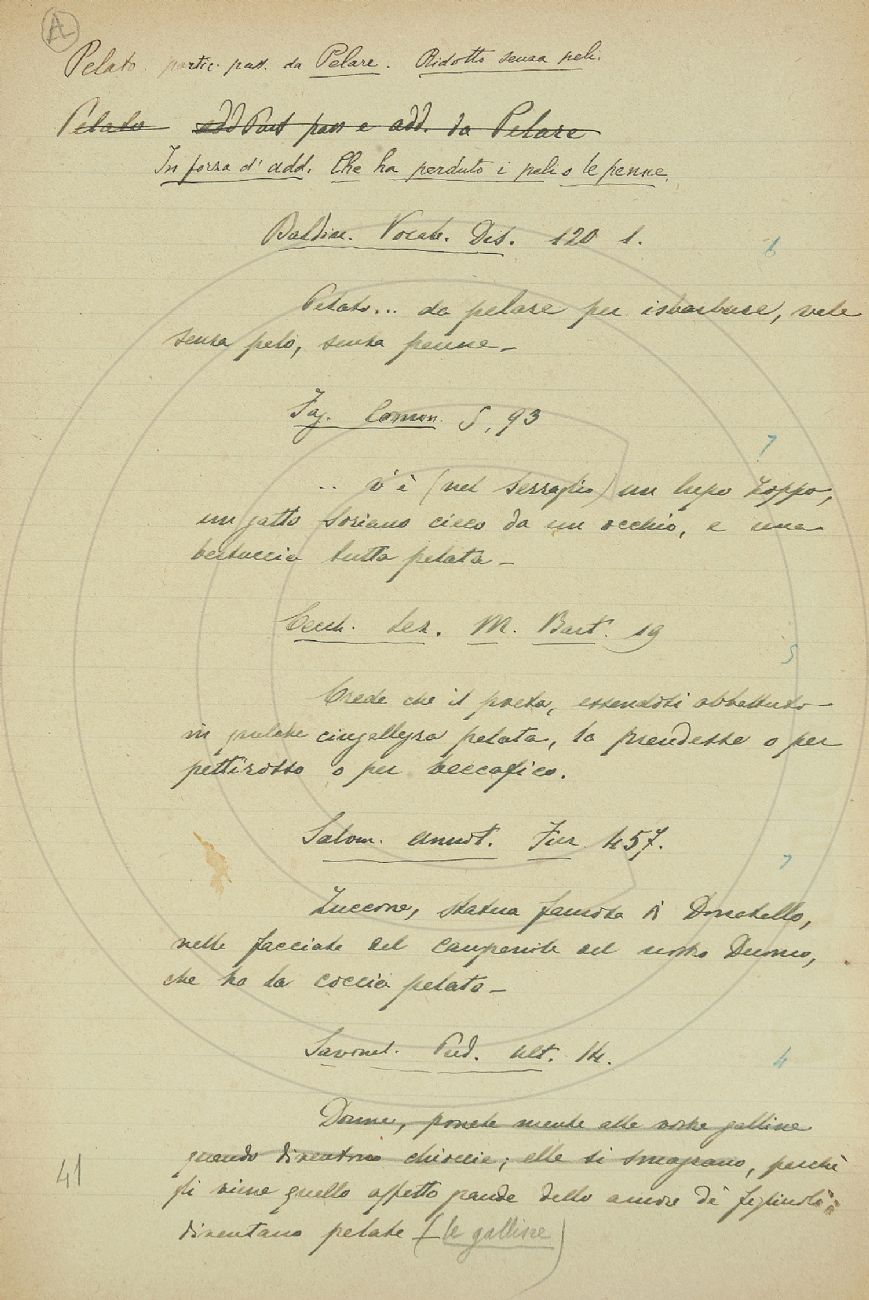 AL
Pelato. partic. pass. da Pelare. Ridotto senza peli.
Pelato add Part pass e add. da Pelare
In forza d' add. Che ha perduto i peli o le penne.
Baldin. Vocab. Dis. 120 1.
6
Pelato... da pelare per isbarbare, vale
senza pelo, senza penne_
Fag. Comm. 5, 93
7
.. v' è (nel serraglio) un lupo zoppo,
un gatto soriano cieco da un occhio, e una
bertuccia tutta pelata_
Cecch. Lez. M. Bart. 19
5
Crede che il poeta, essendosi abbattuto
in qualche cingallegra pelata, la prendesse o per
pettirosso o per beccafico.
Salvin. Annot. Fier. 457.
7
Zuccone, statua famosa di Donatello,
nelle facciate del campanile del nostro Duomo,
che ha la coccia pelata_
Savonar. Pred. ult. 14.
4
Donne, ponete mente alle vostre galline
quando diventono chioccie; elle si smagrano, perchè
gli viene quello affetto grande dello amore de' figliuoli
diventano pelate (le galline)
41